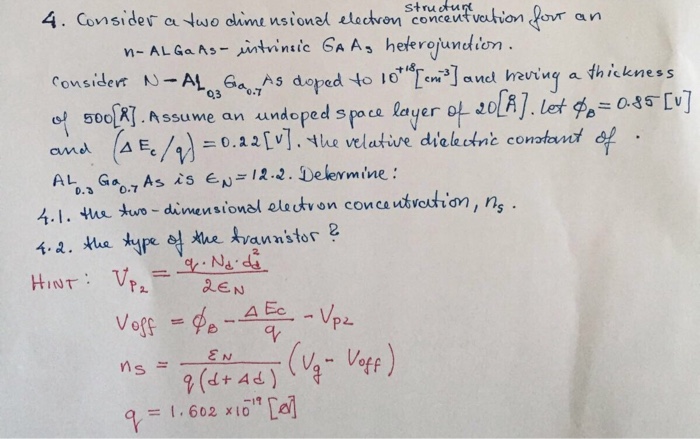 structure
4. Consider a two dimensional electron concentration for an
n-ALGaAs- intrinsic GAAs heterojunction.
Consider N-AL0.3 Ga0.7 As doped to 10^+18 [cm^-3] and having a thickness
of 500[Å]. Assume an undoped space layer of 20[Å]. Let ϕB = 0.85 [V]
and (ΔEc/q) = 0.22[V]. the relative dielectric constant of .
AL0.3 Ga0.7 As is ϵN = 12.2. Determine:
4.1. the two-dimensional electron concentration, ns.
4.2. the type of the transistor?
HINT: Vp2 = q·Nd·dd^2 / 2ϵN
Voff = ϕB - ΔEc/q - Vp2
ns = εN / q(d+Δd) (Vg - Voff)
q = 1.602 x10^-19